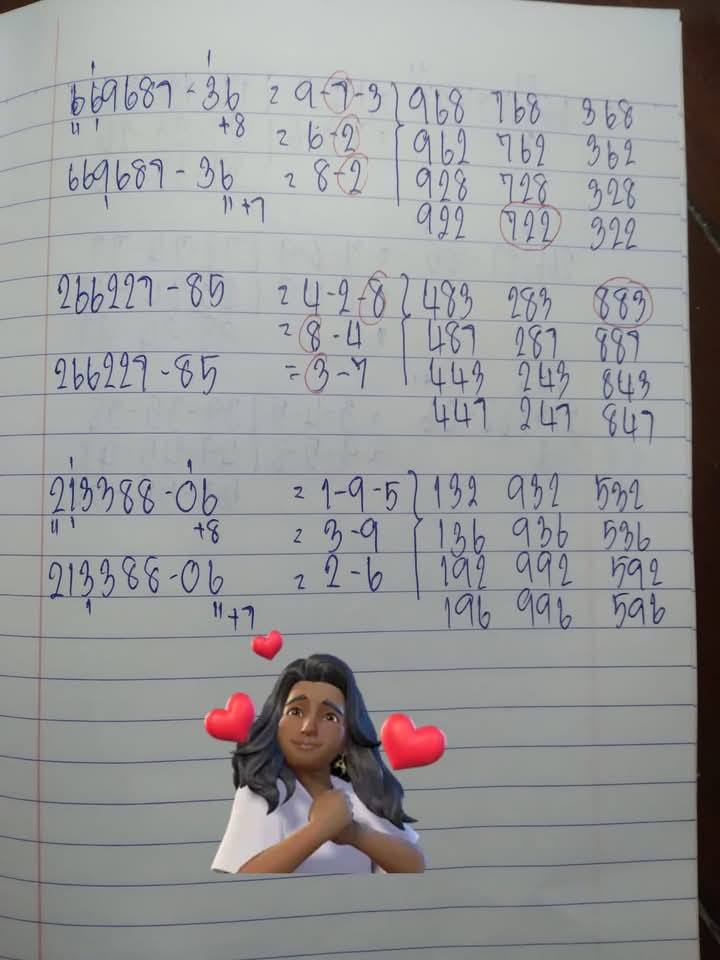 669687 - 36 = 9-7-3 } 968 768 368
+8 = 6-2 962 762 362
669687 - 36 = 8-2 928 728 328
+7 922 722 322
266227 - 85 = 4-2-8 } 483 283 883
= 8-4 487 287 887
266227 - 85 = 3-7 443 243 843
447 247 847
213388 - 06 = 1-9-5 } 132 932 532
+8 = 3-9 136 936 536
213388 - 06 = 2-6 192 992 592
+7 196 996 596